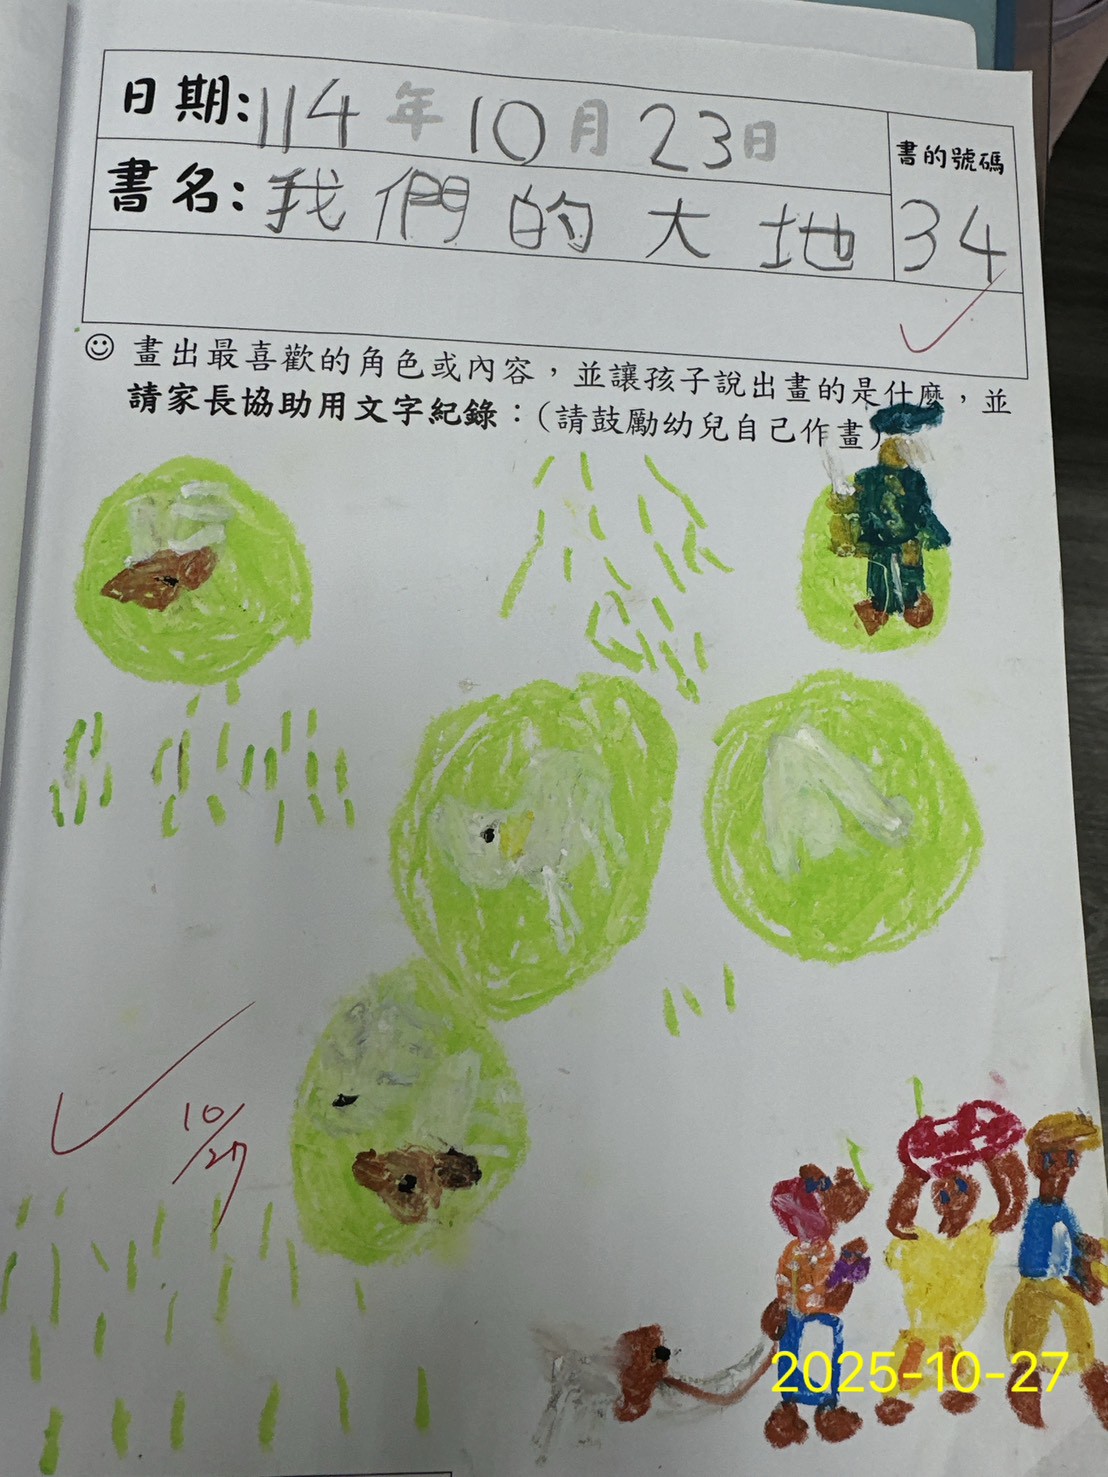 日期:114年10月23日
書的號碼
書名:我們的大地
34
畫出最喜歡的角色或內容，並讓孩子說出畫的是什麼，並
請家長協助用文字紀錄：(請鼓勵幼兒自己作畫)
10/27
2025-10-27